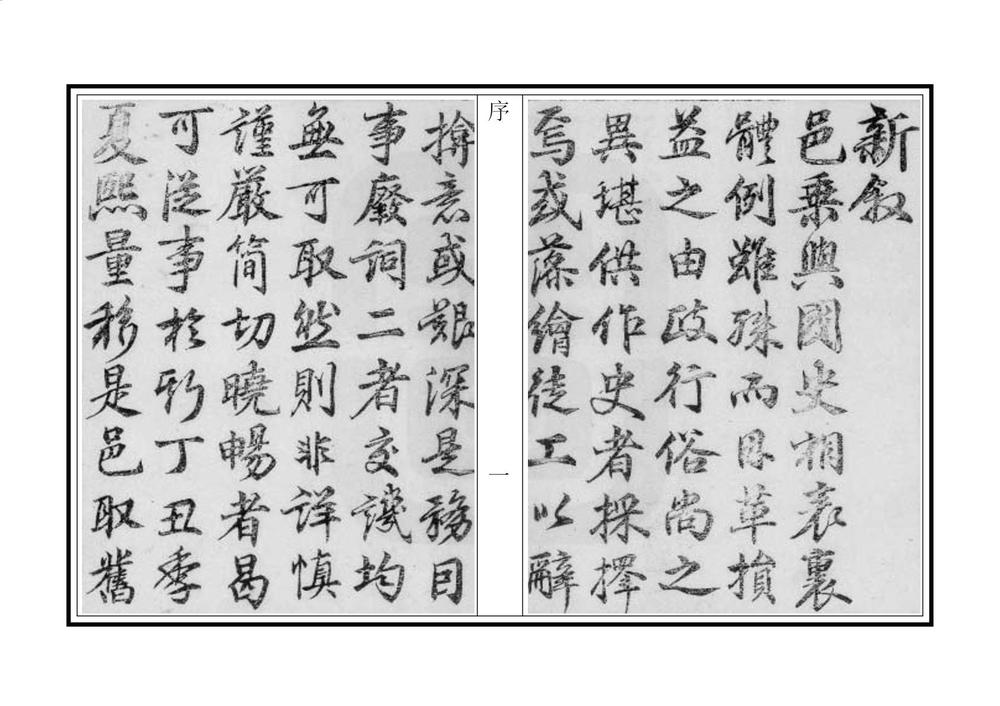 新敘
邑乗與國史相表裏
體例雖殊而因革損
益之由政行俗尚之
異堪供作史者採擇
焉或藻繪徒工以辭
序
一
揜意或艱深是務因
事廢詞二者交譏均
無可取然則非詳慎
謹嚴简切曉暢者曷
可從事於斯丁丑季
夏熙量移是邑取舊